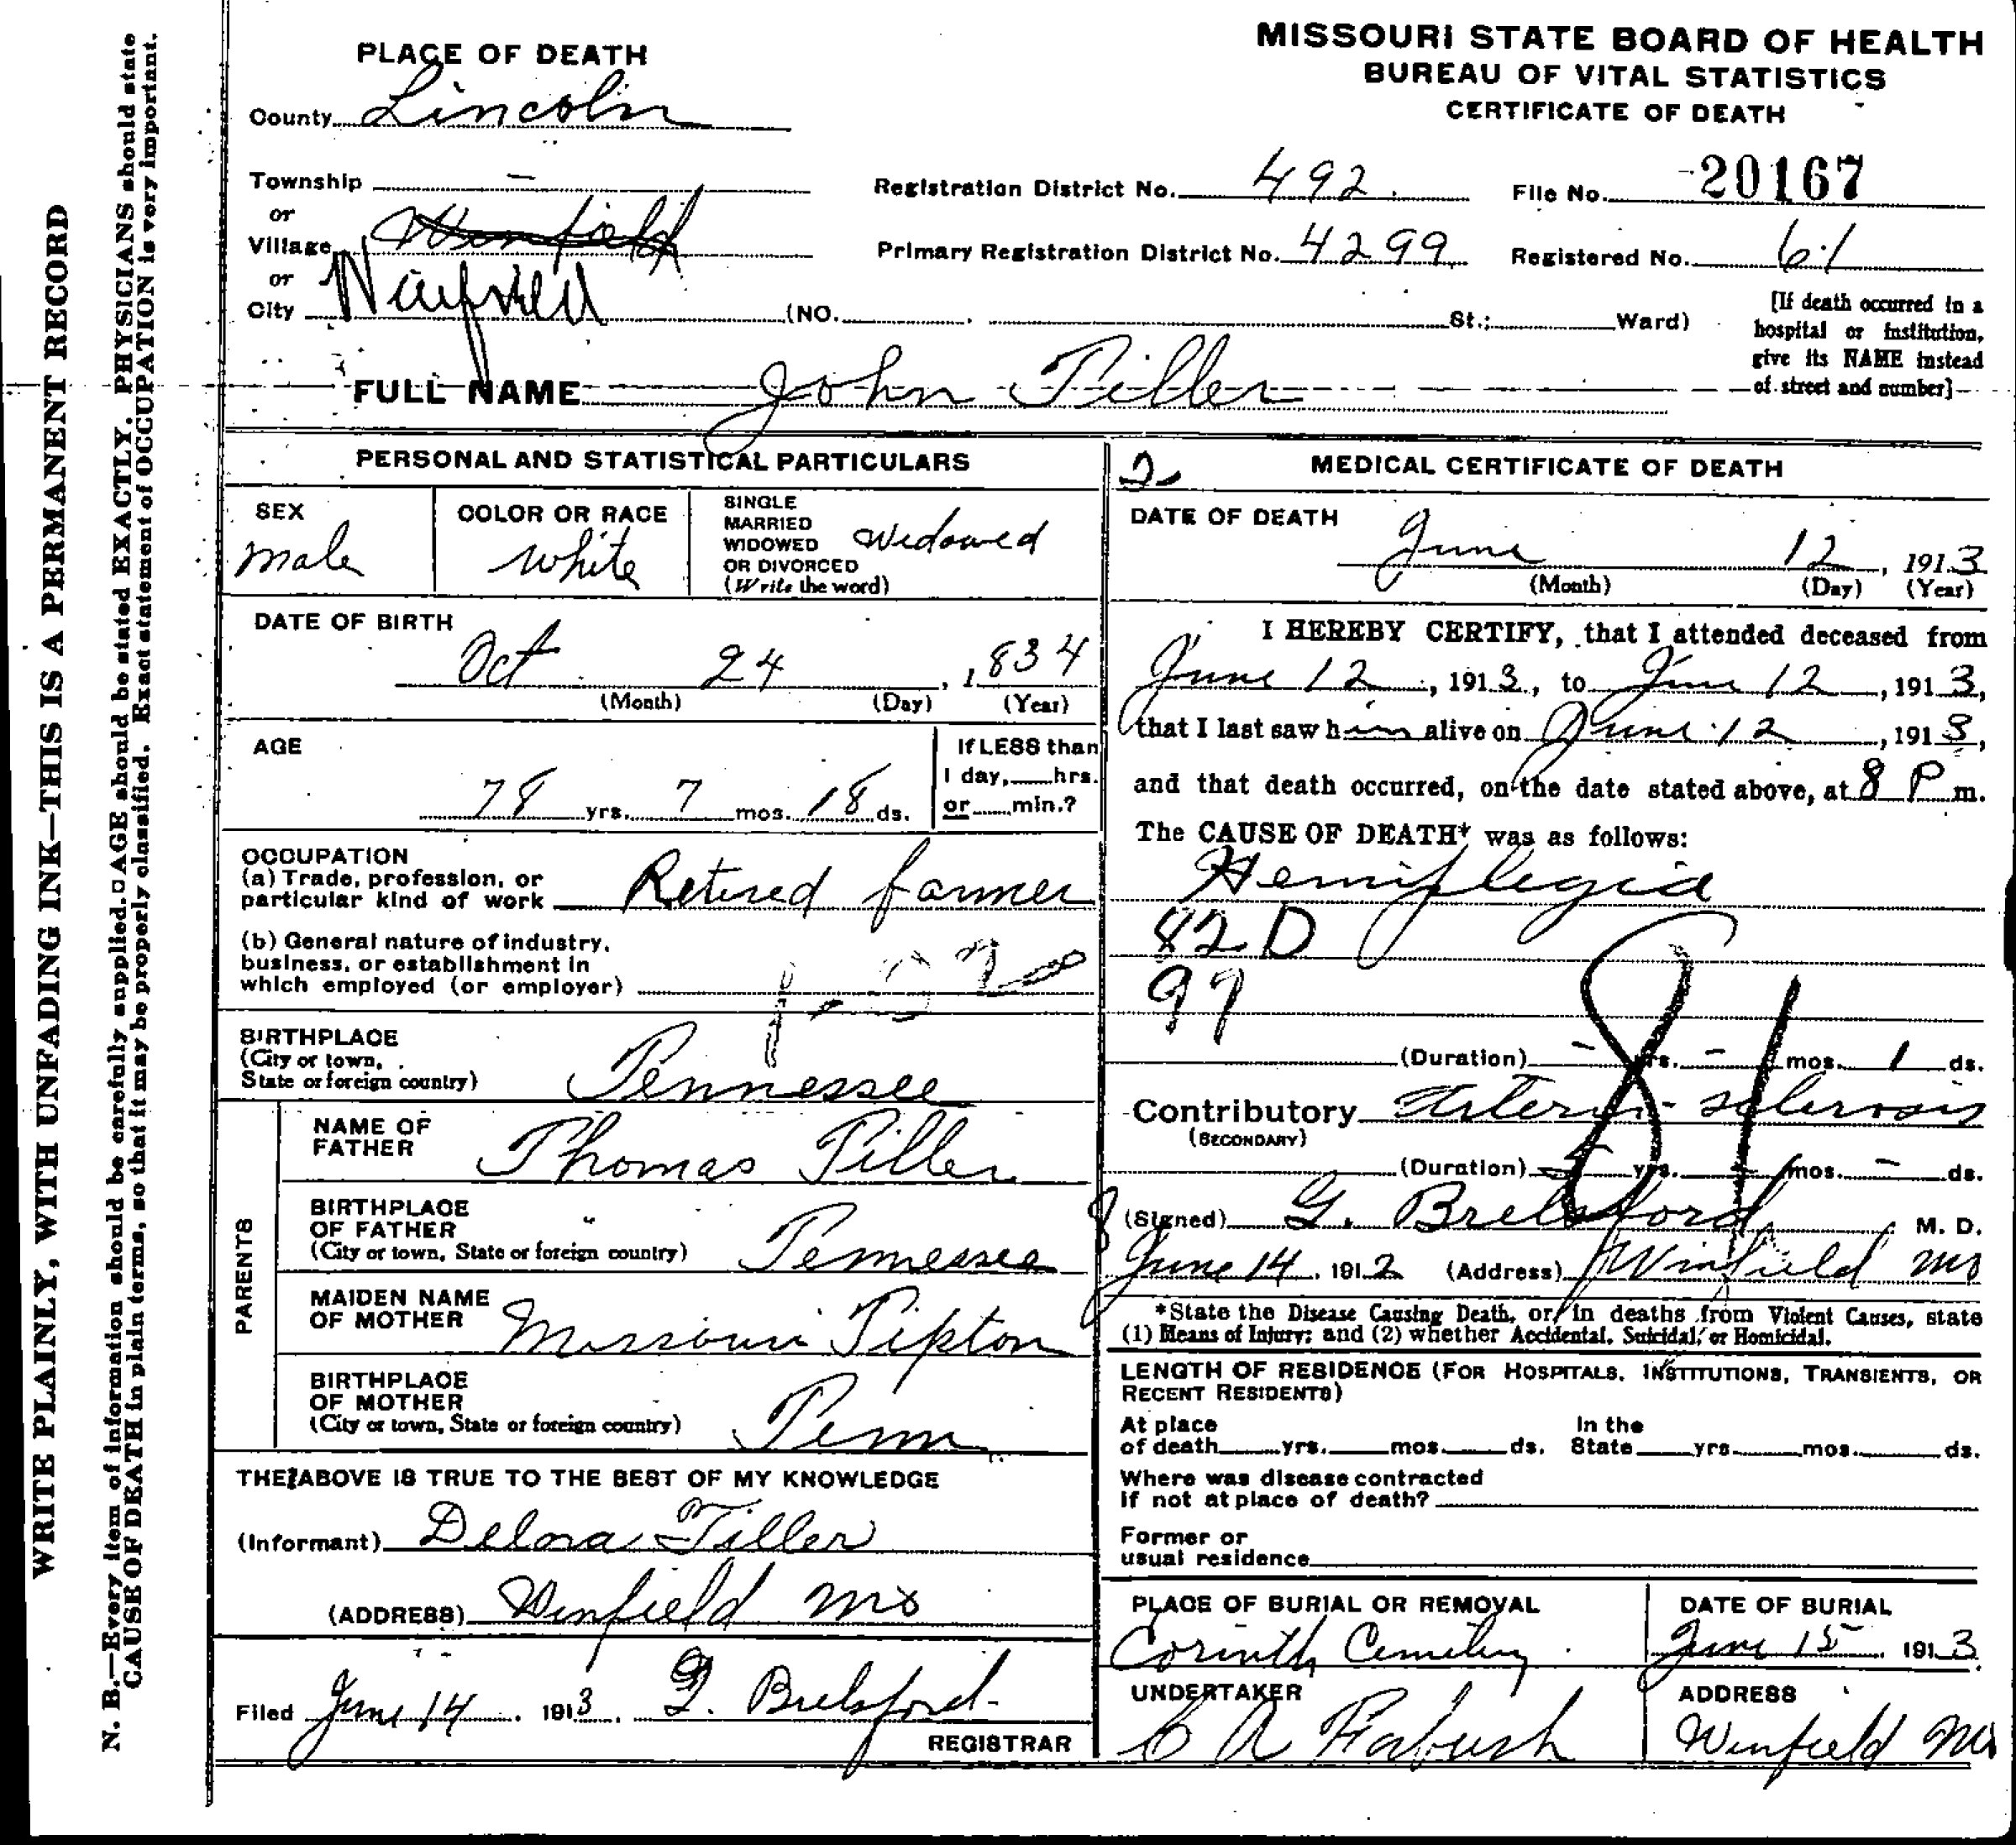 MISSOURI STATE BOARD OF HEALTH
BUREAU OF VITAL STATISTICS
CERTIFICATE OF DEATH
PLACE OF DEATH
County Lincoln
Township —
or
Village Winfield
or
City Winfield (NO. St.; Ward)
Registration District No. 492. File No. 20167
Primary Registration District No. 4299 Registered No. 61
[If death occurred in a
hospital or institution,
give its NAME instead
of street and number]
FULL NAME John Tiller
PERSONAL AND STATISTICAL PARTICULARS
SEX
male
COLOR OR RACE
White
SINGLE
MARRIED
WIDOWED
OR DIVORCED
(Write the word)
Widowed
DATE OF BIRTH
Oct 24, 1834
(Month) (Day) (Year)
AGE
78 yrs. 7 mos. 18 ds.
If LESS than
1 day, hrs.
or min.?
OCCUPATION
(a) Trade, profession, or
particular kind of work Retired farmer
(b) General nature of industry,
business, or establishment in
which employed (or employer)
BIRTHPLACE
(City or town,
State or foreign country) Tennessee
PARENTS
NAME OF
FATHER Thomas Tiller
BIRTHPLACE
OF FATHER
(City or town, State or foreign country) Tennessee
MAIDEN NAME
OF MOTHER Missouri Tipton
BIRTHPLACE
OF MOTHER
(City or town, State or foreign country) Tenn
THE ABOVE IS TRUE TO THE BEST OF MY KNOWLEDGE
(Informant) Delna Tiller
(ADDRESS) Winfield Mo
Filed June 14, 1913, G. Brelsford
REGISTRAR
2
MEDICAL CERTIFICATE OF DEATH
DATE OF DEATH
June 12, 1913
(Month) (Day) (Year)
I HEREBY CERTIFY, that I attended deceased from
June 12, 1913, to June 12, 1913,
that I last saw him alive on June 12, 1913,
and that death occurred, on the date stated above, at 8 P m.
The CAUSE OF DEATH* was as follows:
Hemiplegia
82 D
97
81
(Duration) - yrs. - mos. 1 ds.
Contributory Arterio-sclerosis
(SECONDARY)
(Duration) yrs. mos. - ds.
(Signed) G. Brelsford, M. D.
June 14, 1912 (Address) Winfield Mo
*State the Disease Causing Death, or, in deaths from Violent Causes, state
(1) Means of Injury; and (2) whether Accidental, Suicidal, or Homicidal.
LENGTH OF RESIDENCE (FOR HOSPITALS, INSTITUTIONS, TRANSIENTS, OR
RECENT RESIDENTS)
At place In the
of death yrs. mos. ds. State yrs. mos. ds.
Where was disease contracted
if not at place of death?
Former or
usual residence
PLACE OF BURIAL OR REMOVAL
Corinth Cemetery
DATE OF BURIAL
June 15 1913
UNDERTAKER
C A
ADDRESS
Winfield Mo
WRITE PLAINLY, WITH UNFADING INK—THIS IS A PERMANENT RECORD
N. B.—Every item of information should be carefully supplied. AGE should be stated EXACTLY. PHYSICIANS should state
CAUSE OF DEATH in plain terms, so that it may be properly classified. Exact statement of OCCUPATION is very important.